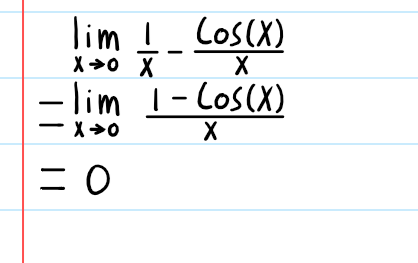 lim x→0 1/x - Cos(X)/x
= lim x→0 (1 - Cos(X))/x
= 0